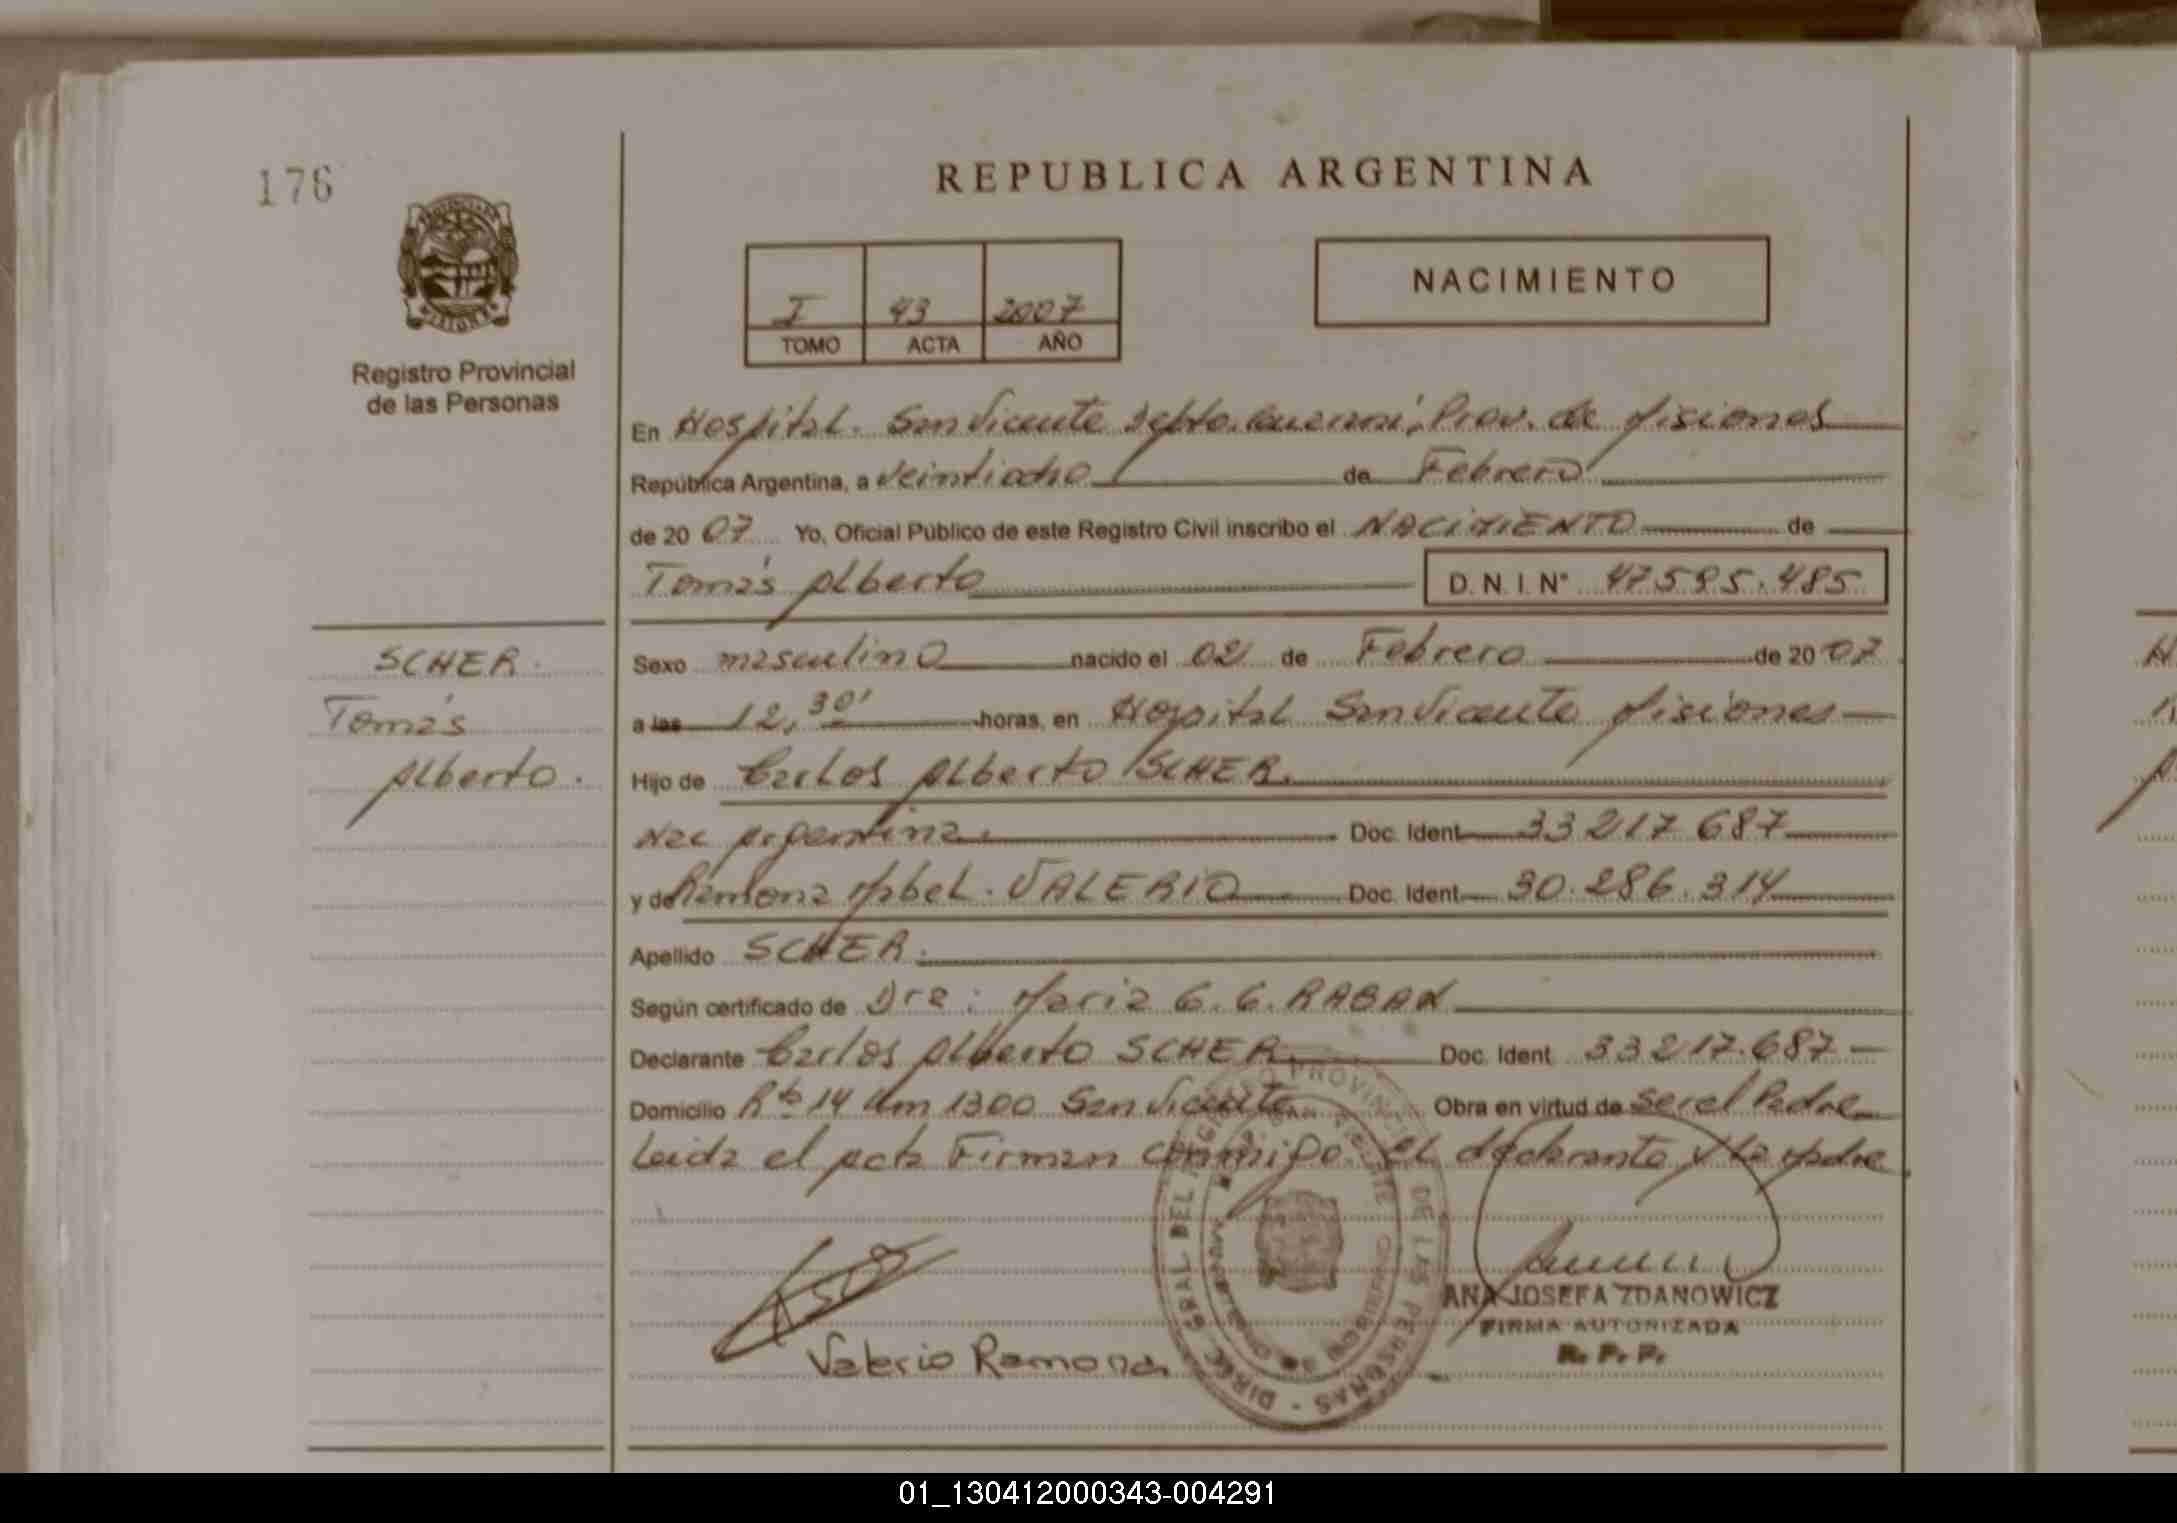 176
REPUBLICA ARGENTINA
PROVINCIA DE
MISIONES
Registro Provincial
de las Personas
I 43 2007
TOMO ACTA AÑO
NACIMIENTO
En Hospital. San Vicente Depto. Guarani, Prov. de Misiones
República Argentina, a veintiocho de Febrero
de 20 07 Yo, Oficial Público de este Registro Civil inscribo el NACIMIENTO de
Tomás Alberto D. N. I. N° 47.595.485
SCHER.
Tomás
Alberto.
Sexo masculino nacido el 02 de Febrero de 20 07
a las 12,30' horas, en Hospital San Vicente Misiones
Hijo de Carlos Alberto SCHER.
Nac Argentina. Doc. Ident 33 217 687
y de Ramona Mabel. VALERIO Doc. Ident 30.286.314
Apellido SCHER.
Según certificado de Dra: Maria G. G. RABAN
Declarante Carlos Alberto SCHER Doc. Ident 33217.687
Domicilio Rta 14 Km 1300 San Vicente Obra en virtud de ser el Padre
Leida el acta Firman conmigo el declarante y la Madre
DIREC. GRAL DEL REGISTRO PROVINCIAL DE LAS PERSONAS
Valerio Ramona
ANA JOSEFA ZDANOWICZ
FIRMA AUTORIZADA
R. P. P.
01_130412000343-004291